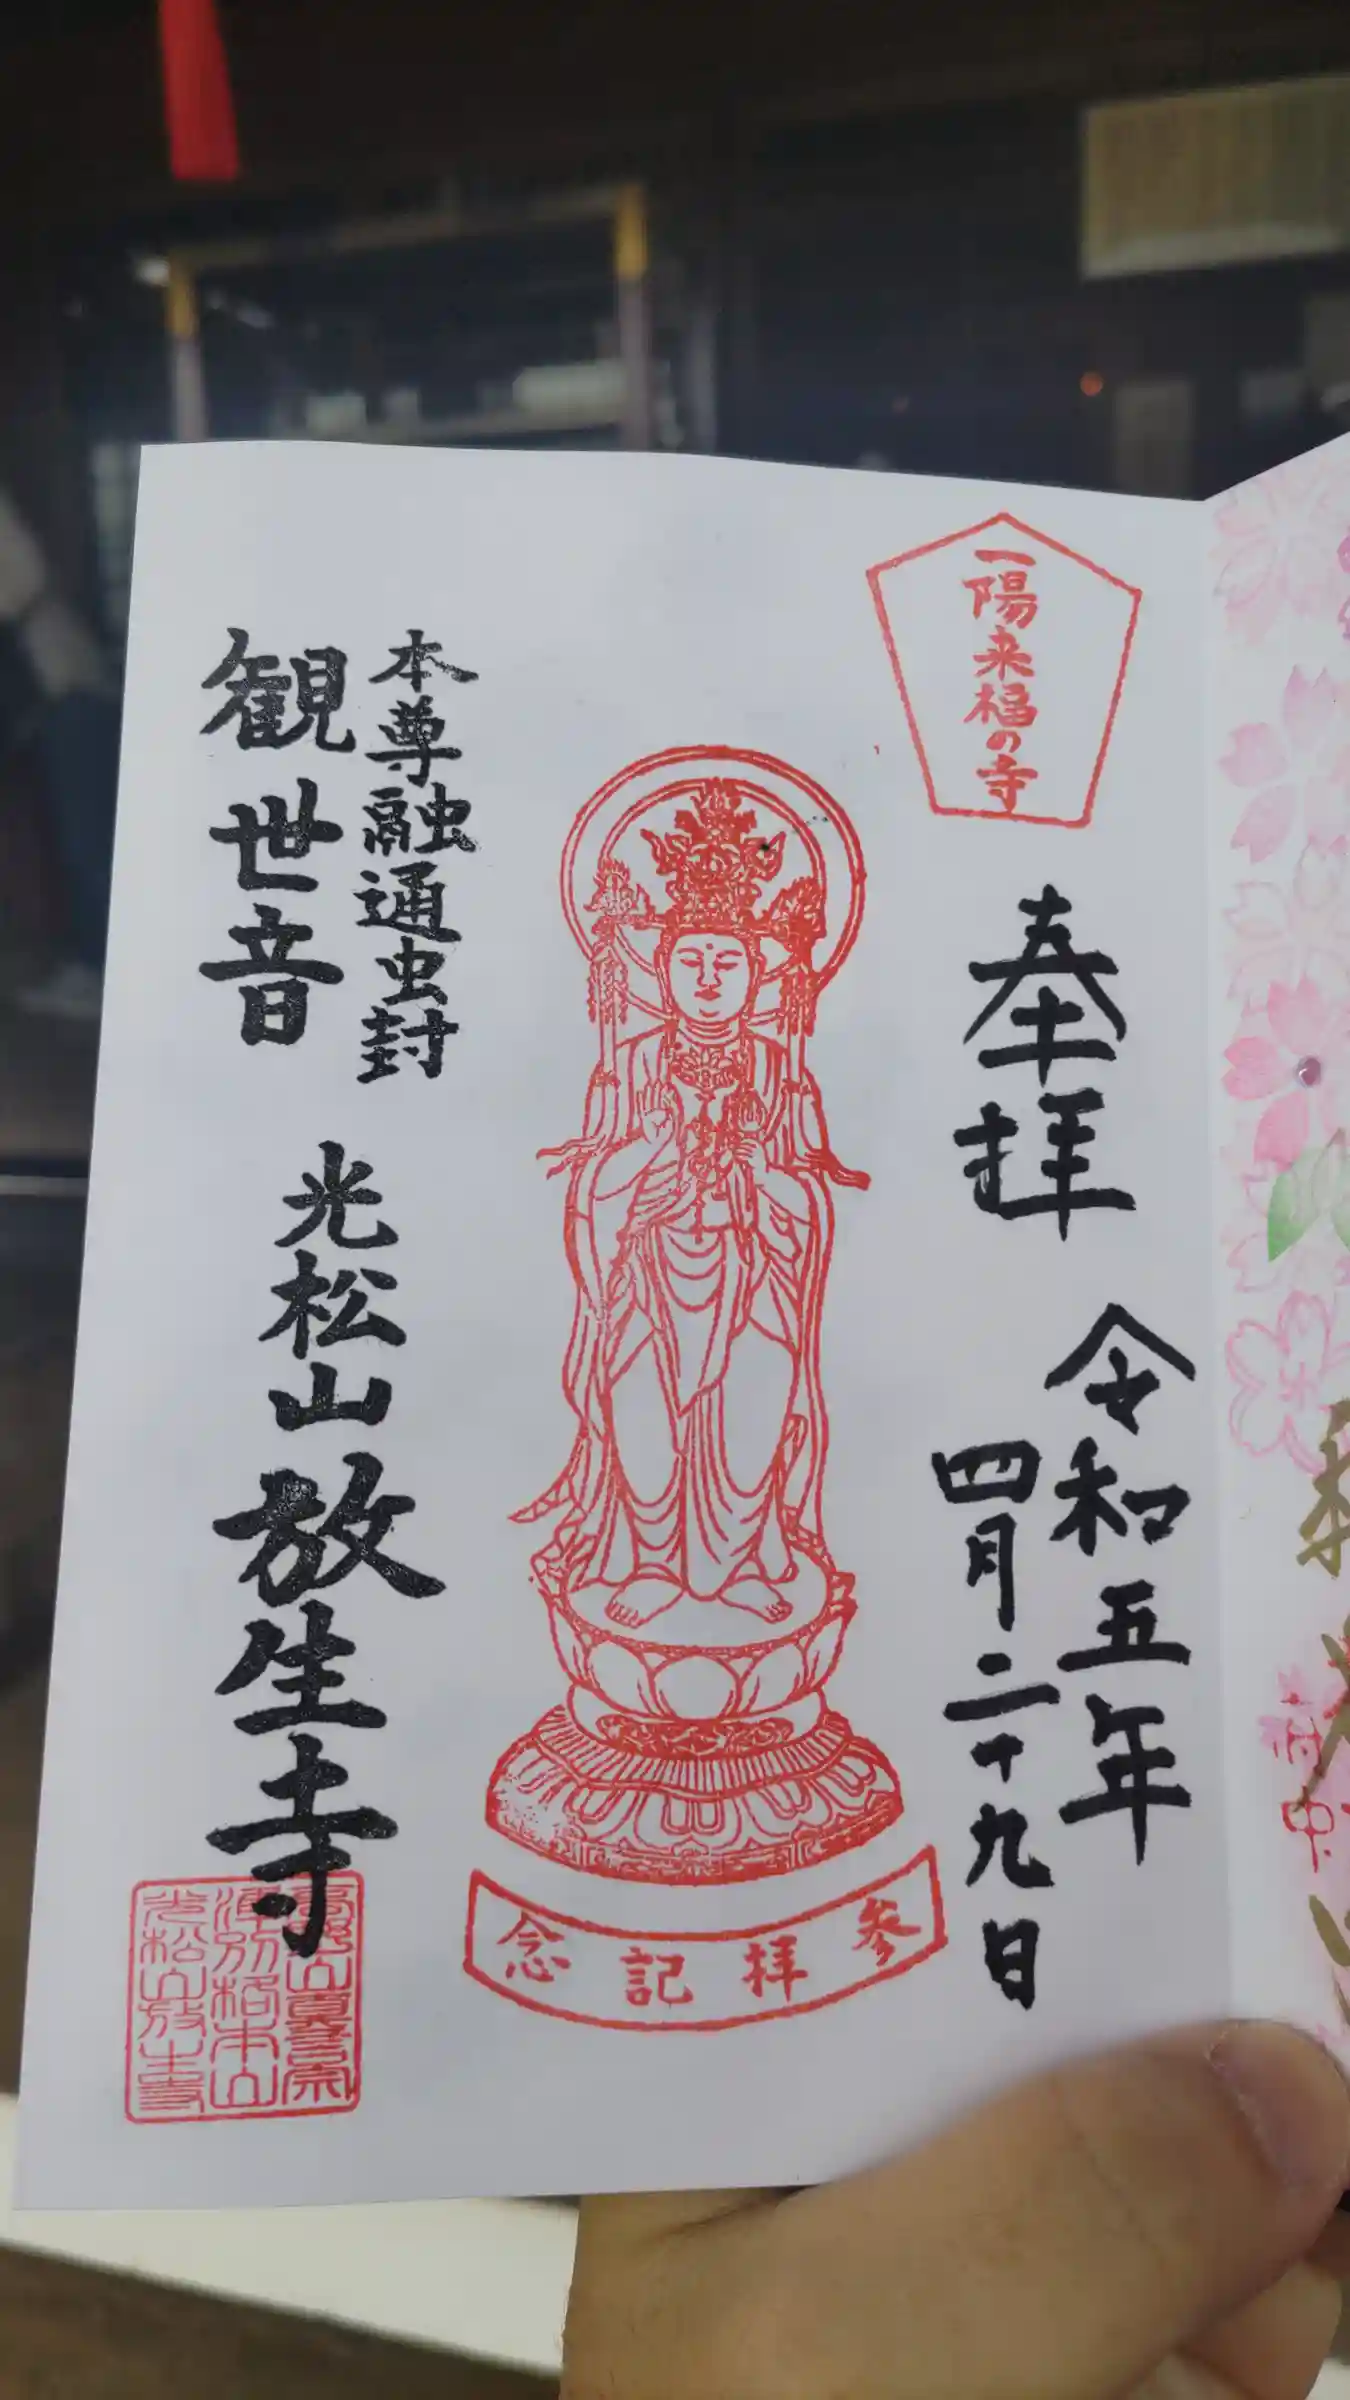 一陽来福の寺
奉拝
令和五年
四月二十九日
参拝記念
本尊融通虫封
観世音
光松山放生寺
準別格本山
光松山放生寺